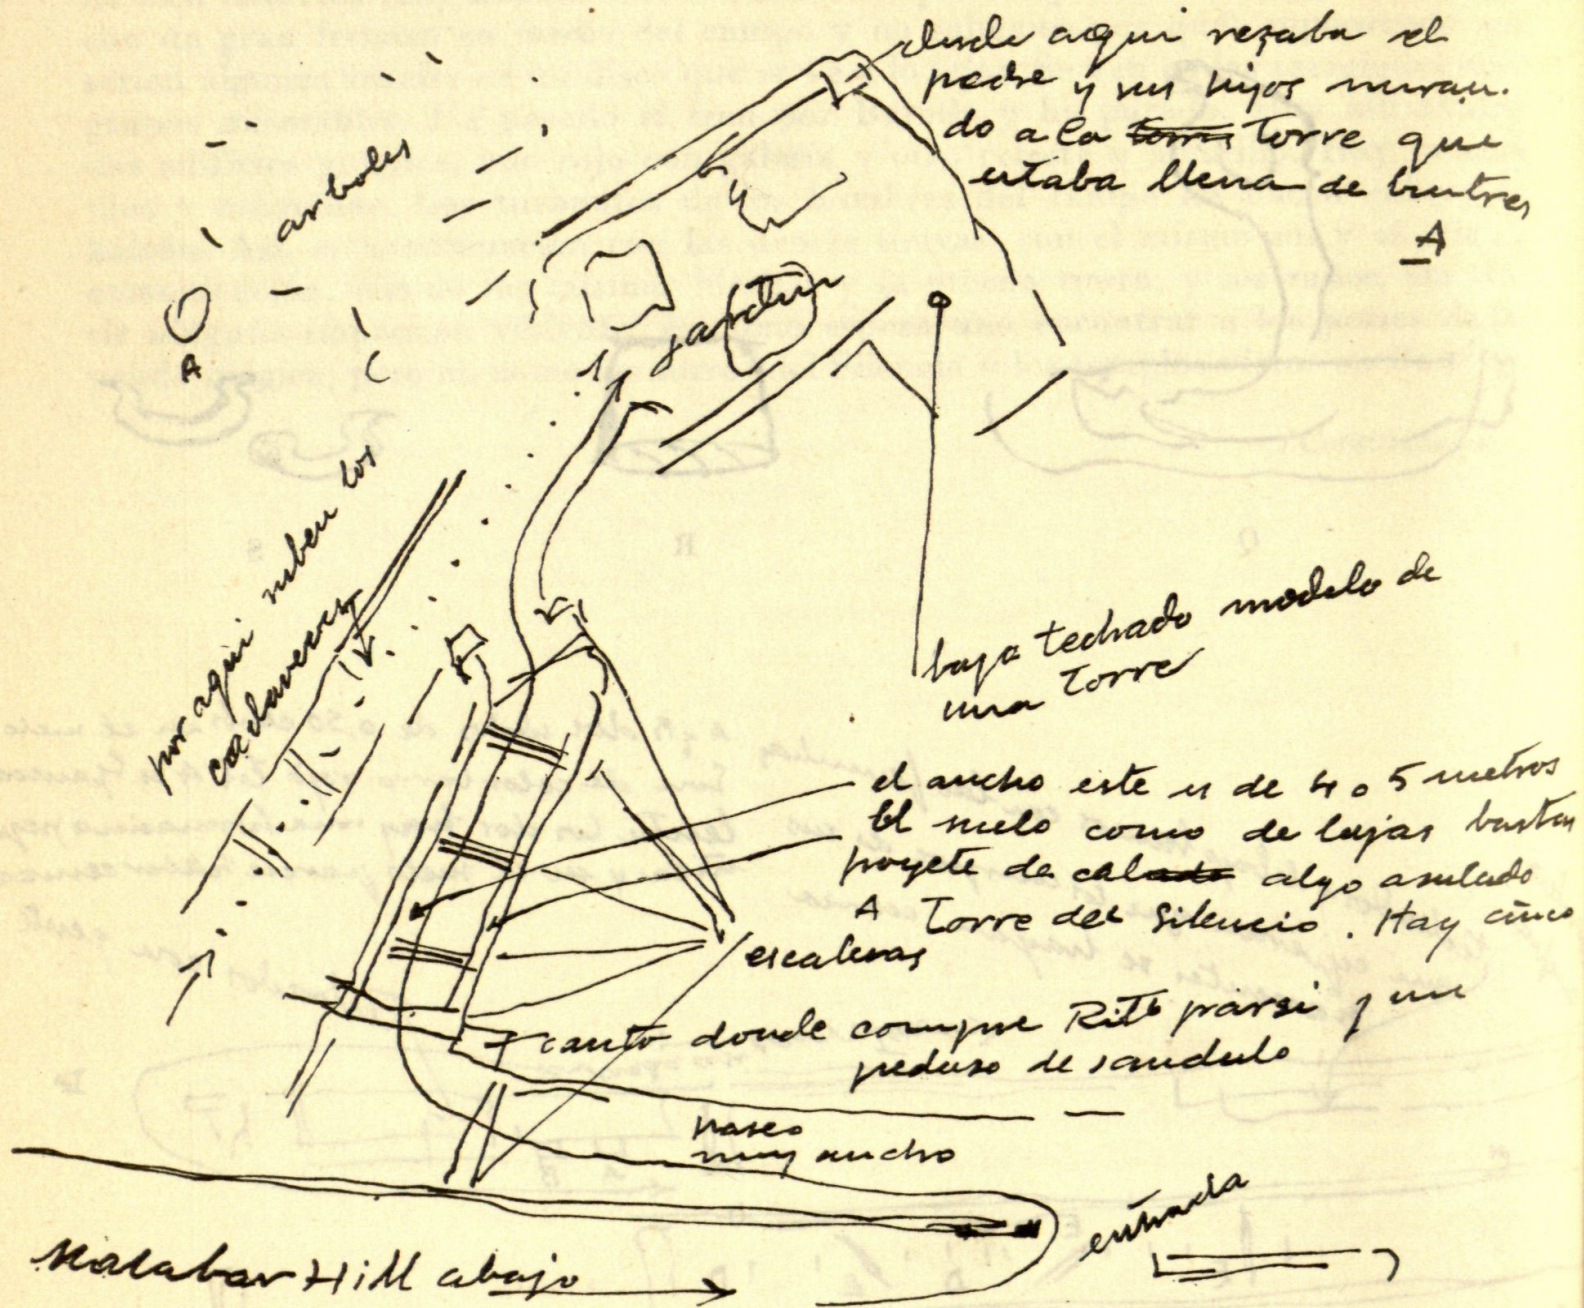 desde aqui rezaba el
padre y sus hijos miran-
do a la torre Torre que
estaba llena de buitres
A
arboles
A
jardin
por aqui suben los
cadaveres
bajo techado modelo de
una Torre
el ancho este es de 4 o 5 metros
El suelo como de lajas bastas
poyete de cal algo asulado
A Torre del Silencio. Hay cinco
escaleras
canto donde compre Rito parsi y un
pedaso de sandulo
paseo
muy ancho
entrada
Malabar Hill abajo
Q
R
S